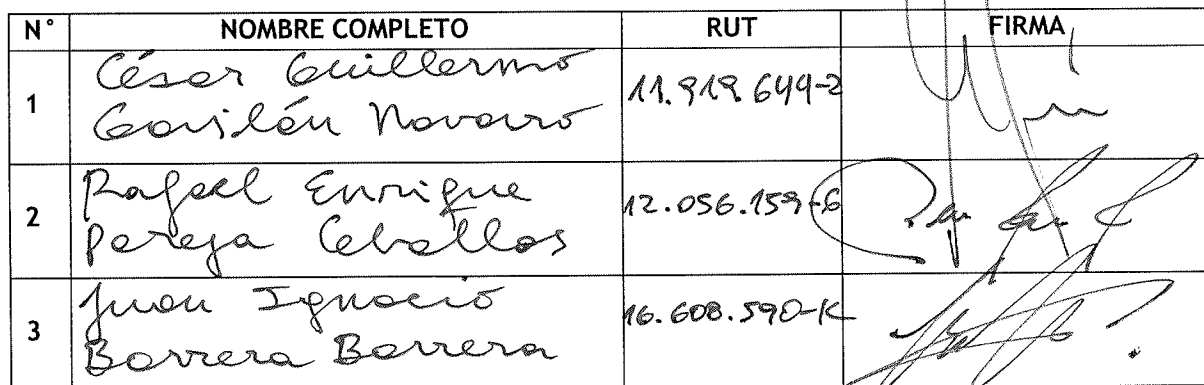 N° NOMBRE COMPLETO RUT FIRMA
1 César Guillermo Gavilán Navarro 11.919.649-2
2 Rafael Enrique Pareja Ceballos 12.056.159-6
3 Juan Ignacio Barrera Barrera 16.608.590-K